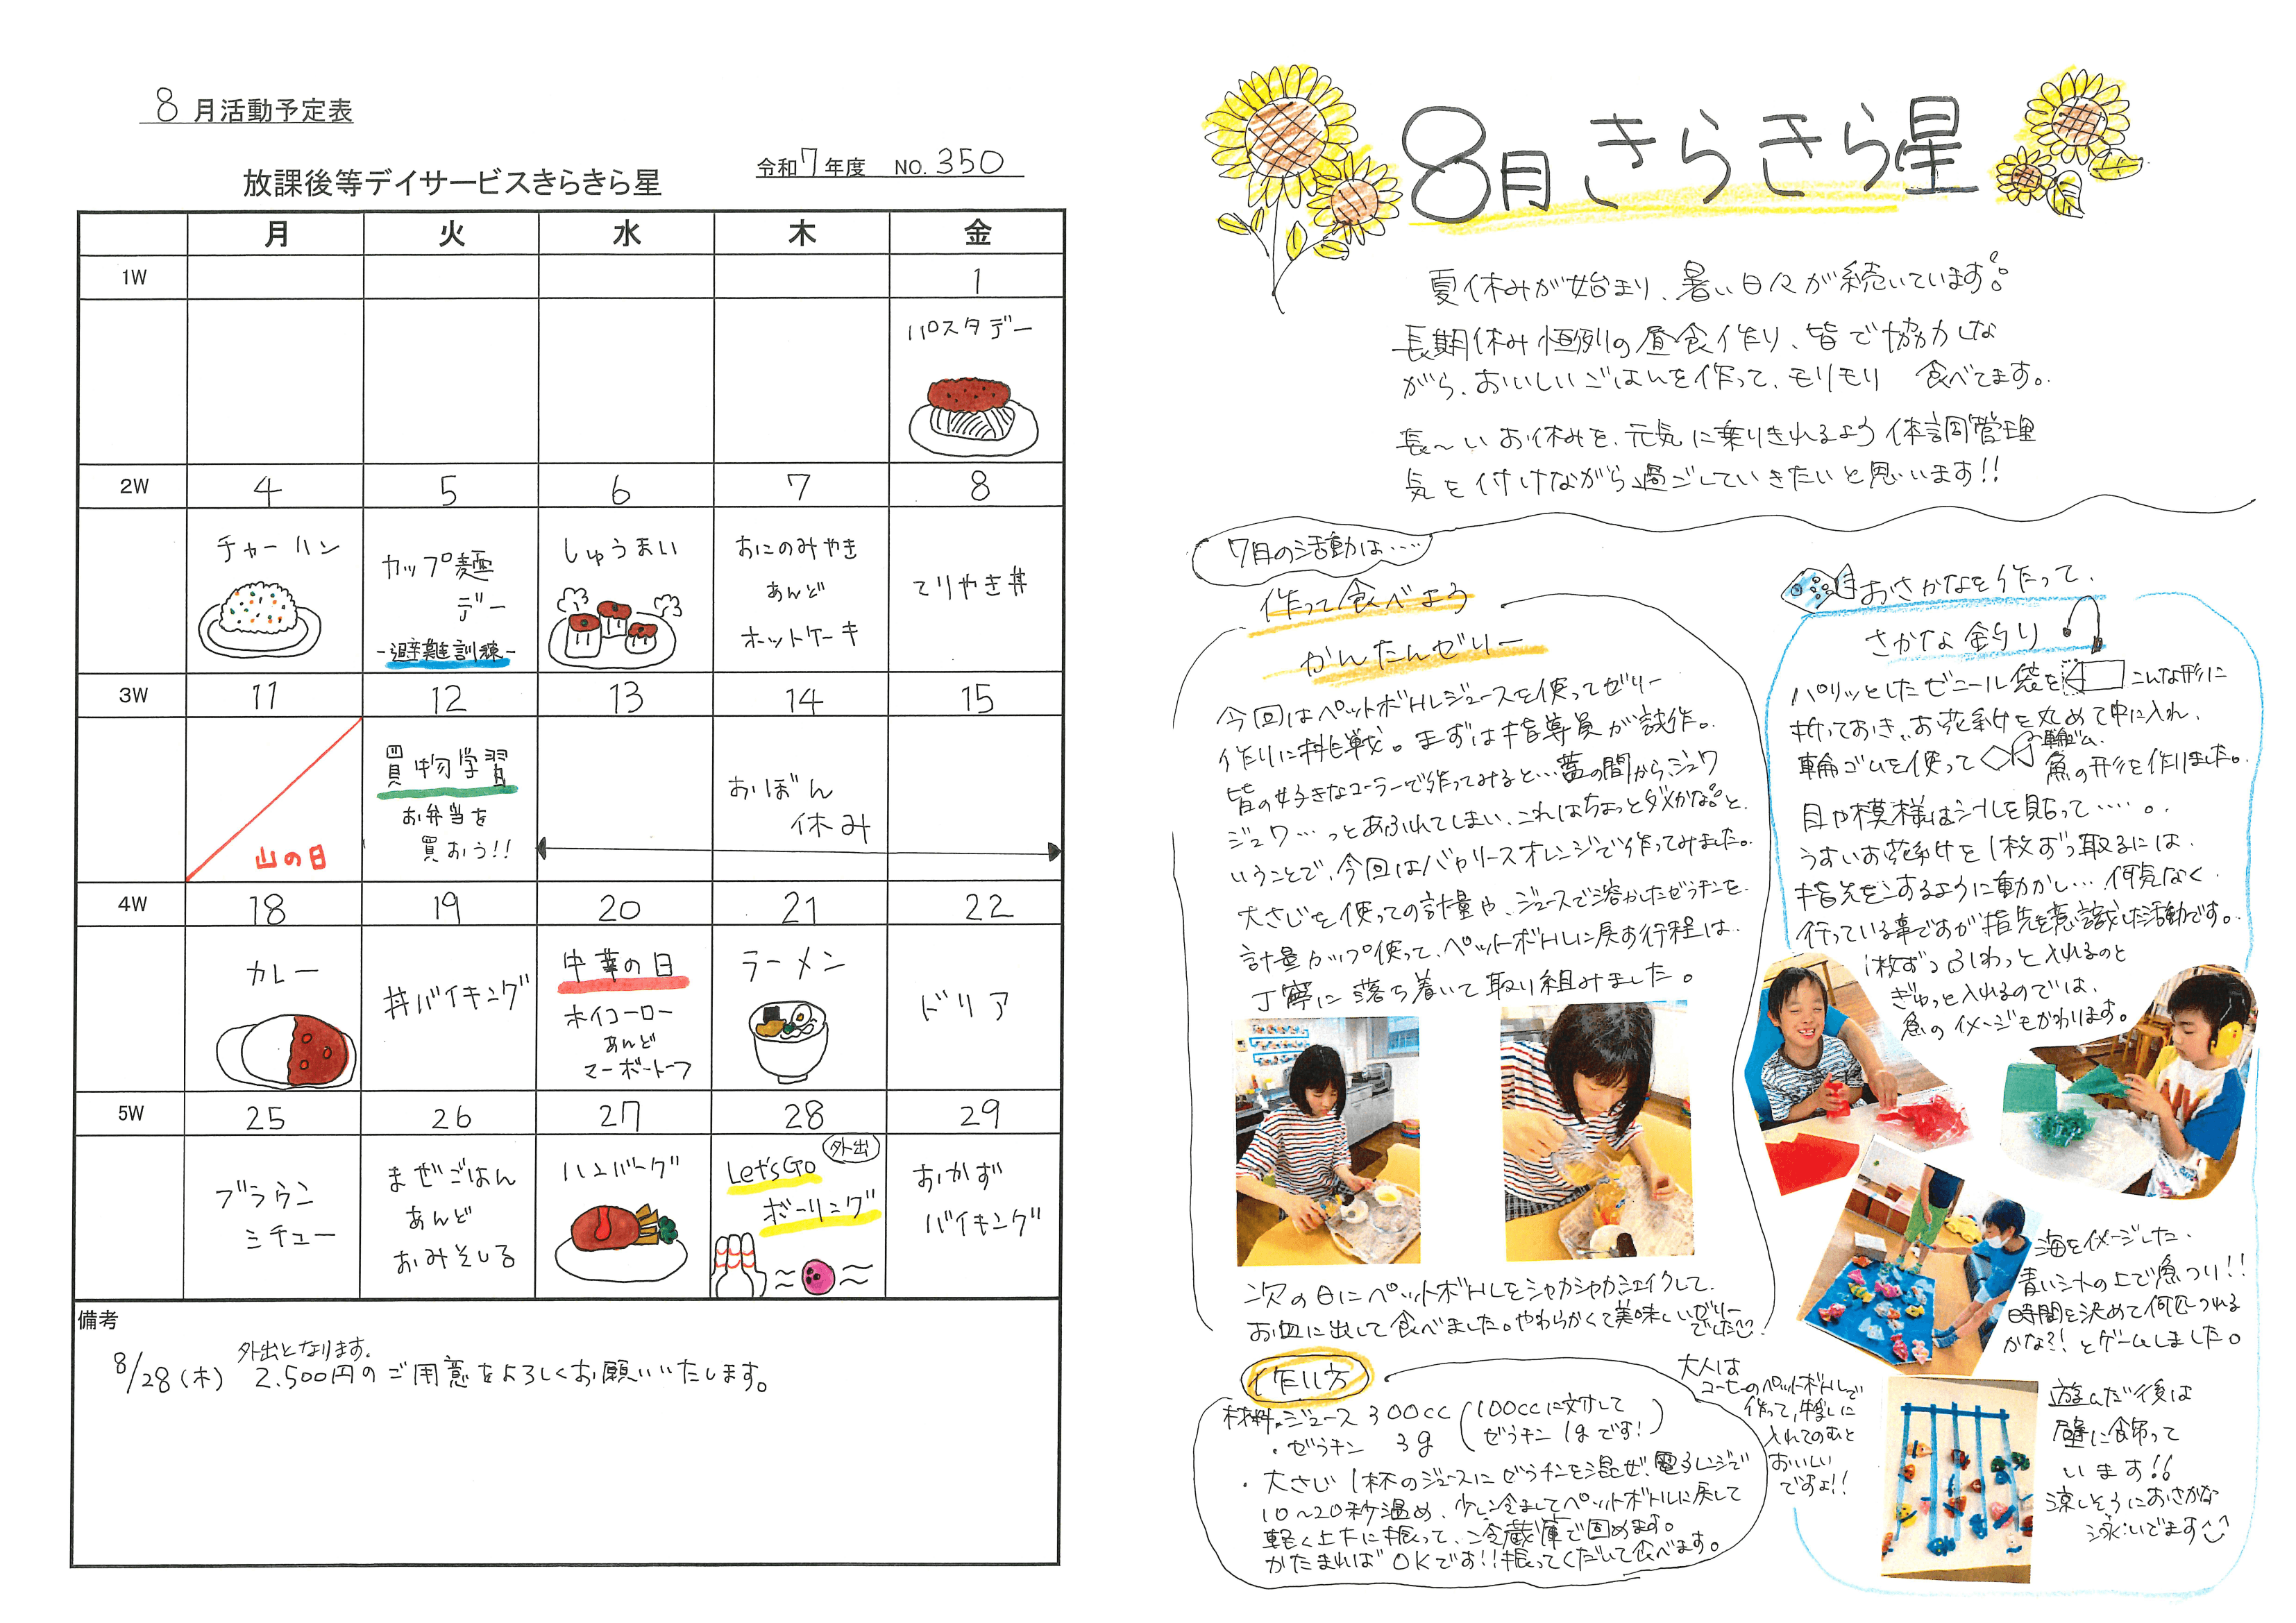 8月活動予定表
令和7年度 NO.350
放課後等デイサービスきらきら星
月 火 水 木 金
1W 1
パスタデー
2W 4 5 6 7 8
チャーハン
カップ麺
デー
-避難訓練-
しゅうまい
おにのみやき
あんど
ホットケーキ
てりやき丼
3W 11 12 13 14 15
山の日
買物学習
お弁当を
買おう!!
おぼん
休み
4W 18 19 20 21 22
カレー
丼バイキング
中華の日
ホイコーロー
あんど
マーボートーフ
ラーメン
ドリア
5W 25 26 27 28 29
ブラウン
シチュー
まぜごはん
あんど
おみそしる
ハンバーグ
外出
Let's Go
ボーリング
おかず
バイキング
備考
外出となります。
8/28(木) 2.500円のご用意をよろしくお願いいたします。
8月きらきら星
夏休みが始まり、暑い日々が続いています。
長期休み恒例の昼食作り、皆で協力しな
がら、おいしいごはんを作って、モリモリ 食べてます。
長〜いお休みを、元気に乗りきれるよう体調管理
気を付けながら過ごしていきたいと思います!!
7月の活動は……
作って食べよう
かんたんゼリー
今回はペットボトルジュースを使ってゼリー
作りに挑戦。まずは指導員が試作。
皆の好きなコーラーで作ってみると…蓋の間から、ジュワ
ジュワ…っとあふれてしまい、これはちょっとダメかな。と、
いうことで、今回はバヤリースオレンジで作ってみました。
大さじを使っての計量や、ジュースで溶かしたゼラチンを、
計量カップ使って、ペットボトルに戻す行程は、
丁寧に落ち着いて取り組みました。
次の日にペットボトルをシャカシャカシェイクして、
お皿に出して食べました。やわらかくて美味しいゼリー
でした
作り方
材料・ジュース 300cc (100ccに対して
・ゼラチン 3g ゼラチン1gです!)
・大さじ1杯のジュースにゼラチンを混ぜ、電子レンジで
10〜20秒温め、少し冷ましてペットボトルに戻して
軽く上下に振って、冷蔵庫で固めます。
かたまればOKです!!振ってくだいて食べます。
大人は
コーヒーのペットボトルで
作って、牛乳に
入れてのむと
おいしい
ですよ!!
おさかなを作って、
さかな釣り
パリッとしたビニール袋を こんな形に
折っておき、お花紙を丸めて中に入れ、
輪ゴム
輪ゴムを使って 魚の形を作りました。
目や模様はシールを貼って……。
うすいお花紙を1枚ずつ取るには、
指先をこするように動かし…何気なく
行っている事ですが指先を意識した活動です。
1枚ずつふわっと入れるのと
ぎゅっと入れるのでは、
魚のイメージもかわります。
海をイメージした、
青いシートの上で魚つり!!
時間を決めて何匹つれる
かな?!とゲームしました。
遊んだ後は
壁に飾って
います!!
涼しそうにおさかな
泳いでます